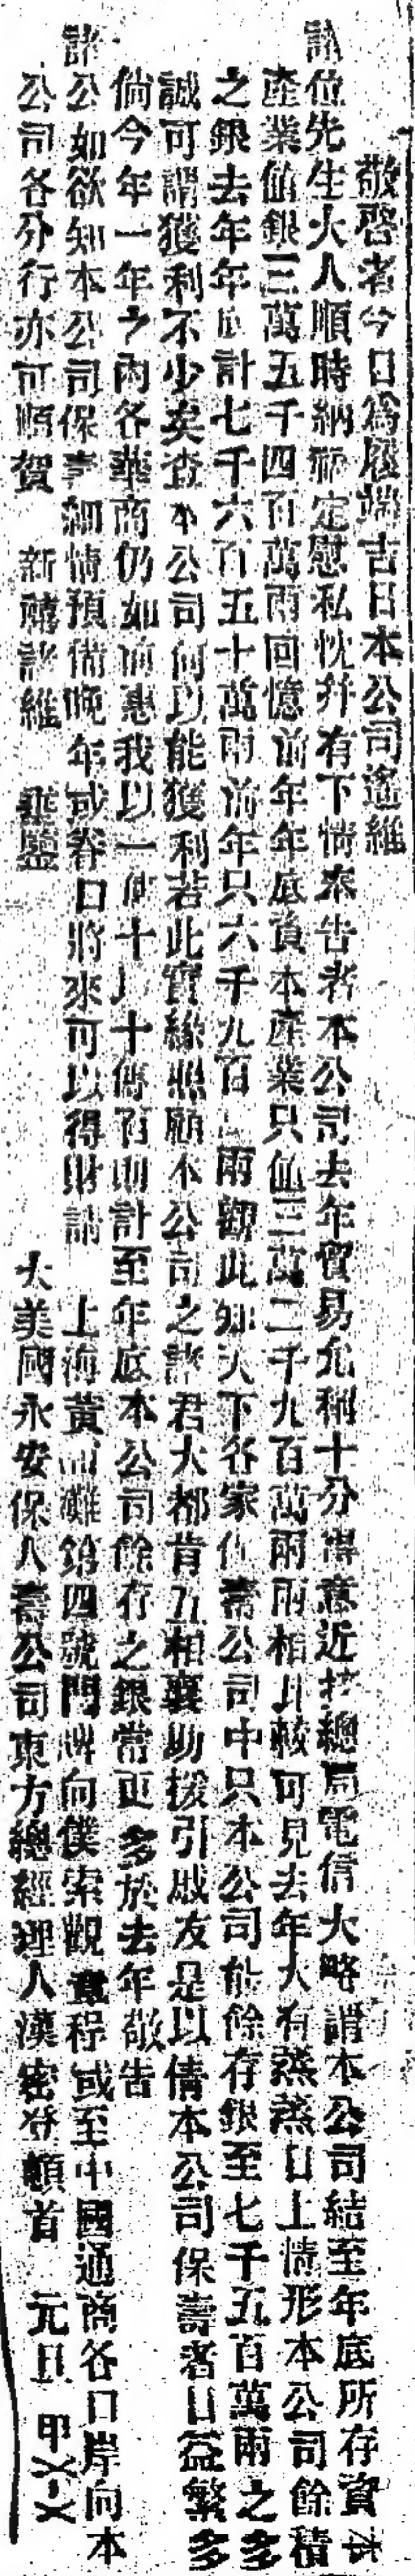 敬啓者今日爲履端吉日本公司遙維
諸位先生大人順時納祐定慰私忱并有下情奉告者本公司去年貿易尤稱十分得意近接總局電信大略謂本公司結至年底所存資本
產業值銀三萬五千四百萬兩回憶前年年底資本產業只值三萬二千九百萬兩兩相比較可見去年大有蒸蒸日上情形本公司餘積
之銀去年年底計七千六百五十萬兩前年只六千九百 兩觀此知天下各家保壽公司中只本公司能餘存銀至七千五百萬兩之多
誠可謂獲利不少矣查本公司何以能獲利若此實緣照顧本公司之諸君大都肯互相襄助援引戚友是以倩本公司保壽者日益繁多
倘今年一年之內各華商仍如前惠我以一傳十以十傳百則計至年底本公司餘存之銀當更多於去年敬告
諸公如欲知本公司保壽細情預備晚年或養口將來可以得財請 上海黃浦灘第四號門牌向僕索觀章程或至中國通商各口岸向本
公司各分行亦可順賀 新禧諸維 垂鑒 大美國永安保人壽公司東方總經理人漢密登頓首 元旦 甲〤〡〤